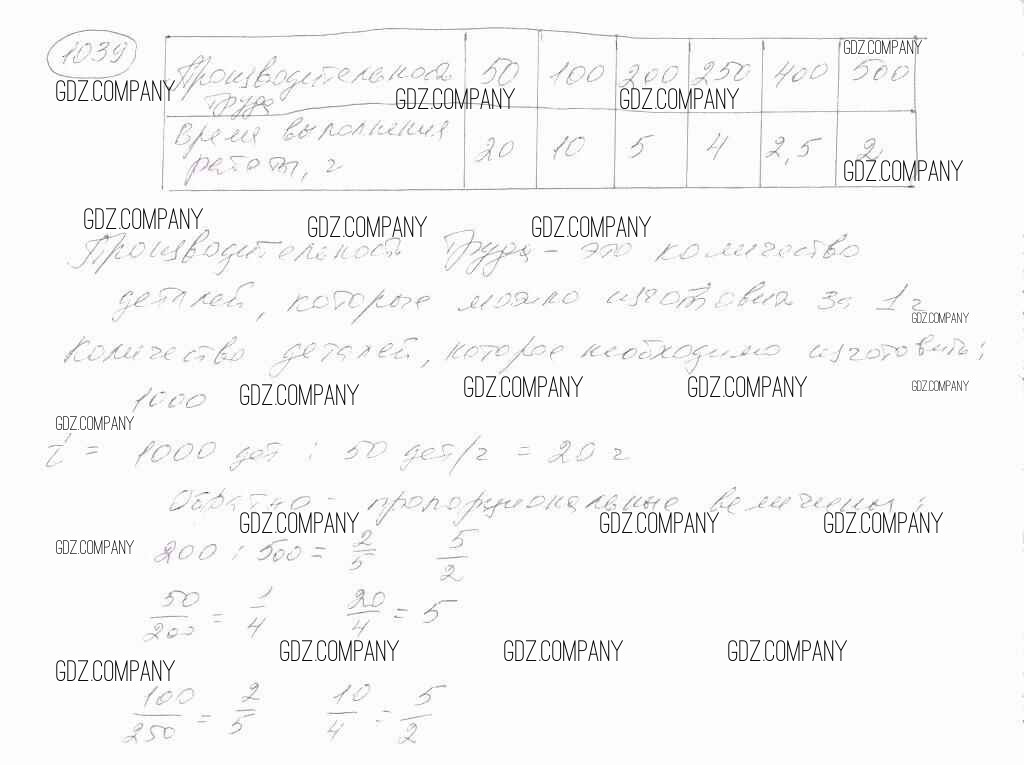 1039
Производительность труда 50 100 200 250 400 500
GDZ.COMPANY
GDZ.COMPANY GDZ.COMPANY GDZ.COMPANY
Время выполнения работы, ч 20 10 5 4 2,5 2
GDZ.COMPANY
GDZ.COMPANY GDZ.COMPANY GDZ.COMPANY
Производительность труда - это количество
деталей, которые можно изготовить за 1 ч
GDZ.COMPANY
Количество деталей, которое необходимо изготовить:
1000
GDZ.COMPANY GDZ.COMPANY GDZ.COMPANY GDZ.COMPANY
GDZ.COMPANY
t = 1000 дет : 50 дет/ч = 20 ч
Обратно - пропорциональные величины:
GDZ.COMPANY GDZ.COMPANY GDZ.COMPANY
GDZ.COMPANY
200 : 500 = 2/5 5/2
50/200 = 1/4 20/4 = 5
GDZ.COMPANY GDZ.COMPANY GDZ.COMPANY
GDZ.COMPANY
100/250 = 2/5 10/4 = 5/2